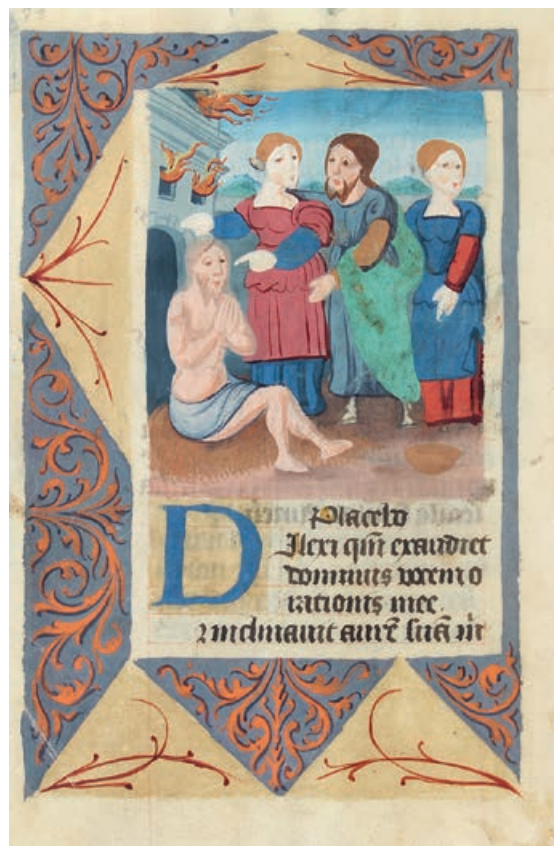 Placebo
Dilexi qm̄ exaudiet
dominus vocem o
rationis mee.
⁊ inclinauit aurē suā m̄